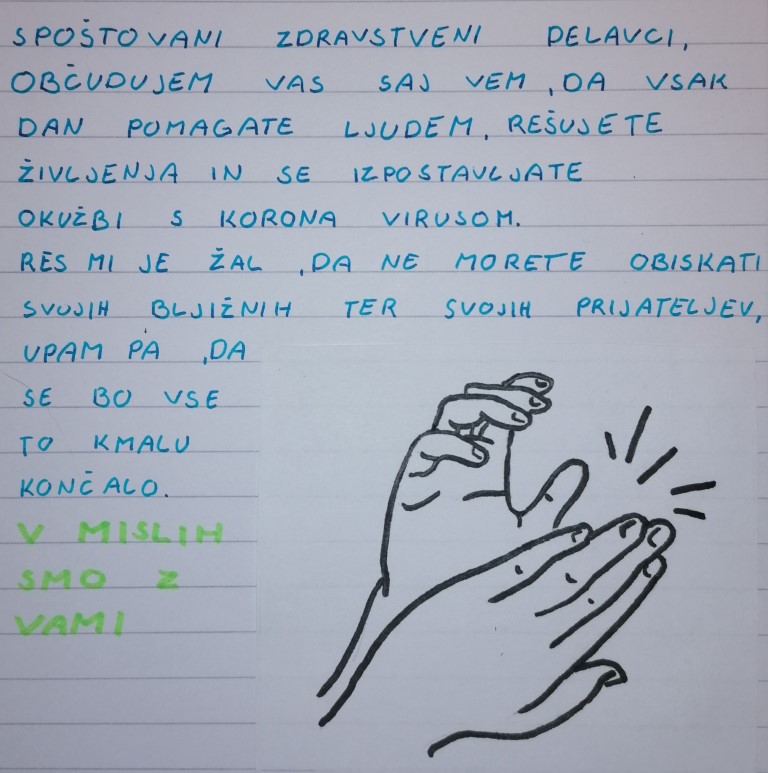 SPOŠTOVANI ZDRAVSTVENI DELAVCI,
OBČUDUJEM VAS SAJ VEM ,DA VSAK
DAN POMAGATE LJUDEM, REŠUJETE
ŽIVLJENJA IN SE IZPOSTAVLJATE
OKUŽBI S KORONA VIRUSOM.
RES MI JE ŽAL ,DA NE MORETE OBISKATI
SVOJIH BLJIŽNIH TER SVOJIH PRIJATELJEV,
UPAM PA ,DA
SE BO VSE
TO KMALU
KONČALO.
V MISLIH
SMO Z
VAMI